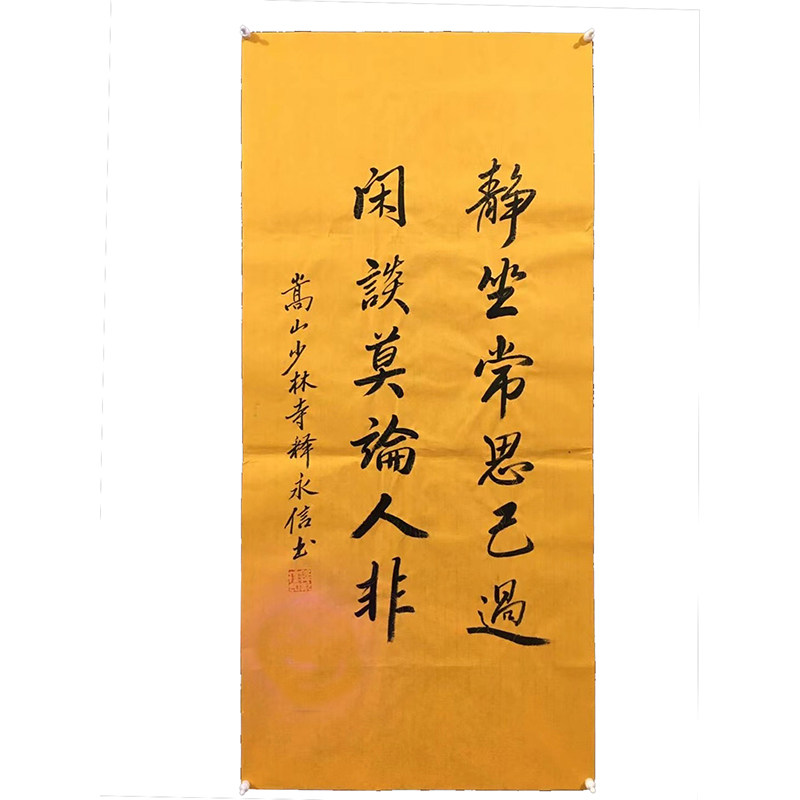 静坐常思己過
闲談莫論人非
嵩山少林寺释永信书